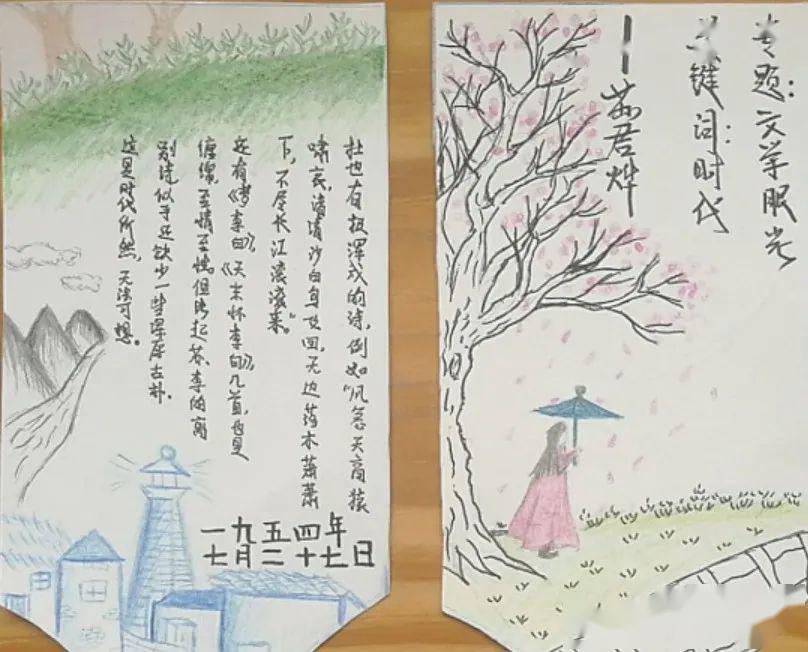 杜也有极浑成的诗，例如“风急天高猿
啸哀，渚清沙白鸟飞回，无边落木萧萧
下，不尽长江滚滚来。”
还有《梦李白》，《天末怀李白》几首，也是
缠绵，至情至性。但比起苏、李的离
别诗似乎还缺少一些浑厚古朴。
这是时代所然，无法可想。
一九五四年
七月二十七日
专题：文学眼光
键词：时代
君烨